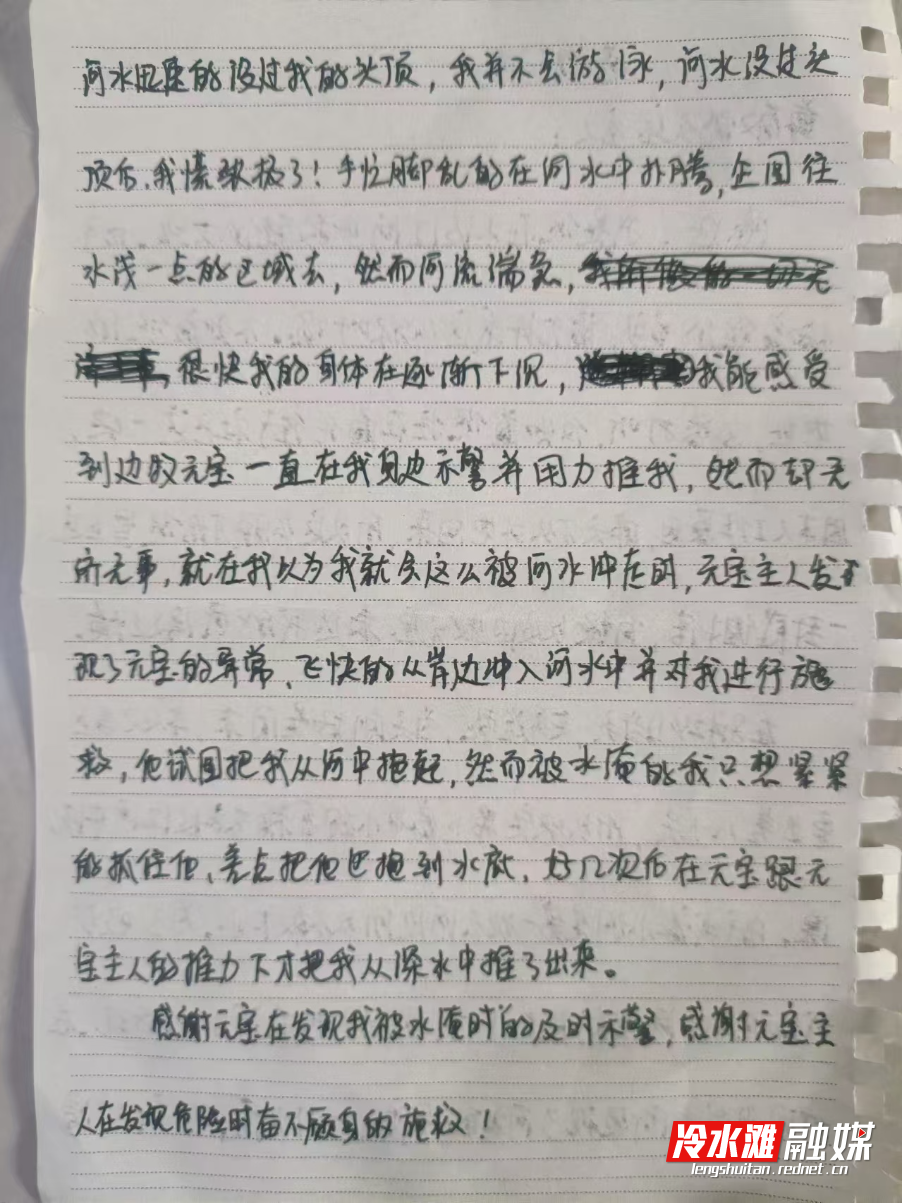 河水迅速的没过我的头顶，我并不会游泳，河水没过头
顶后，我慌张极了！手忙脚乱的在河水中扑腾，企图往
水浅一点的区域去，然而河流湍急，我所做的一切无
很快我的身体在逐渐下沉，我能感受
到边牧元宝一直在我身边示警并用力推我，然而却无
济无事，就在我以为我就会这么被河水冲走时，元宝主人发
现了元宝的异常、飞快的从岸边冲入河水中并对我进行施
救，他试图把我从河中抱起，然而被水淹的我只想紧紧
的抓住他、差点把他也拖到水底，好几次后在元宝跟元
宝主人的推力下才把我从深水中推了出来。
感谢元宝在发现我被水淹时的及时示警，感谢元宝主
人在发现危险时奋不顾身的施救！
冷水滩融媒
lengshuitan.rednet.cn